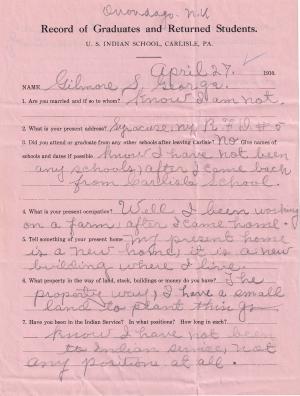 Onondaga. N.Y.
Record of Graduates and Returned Students.
U. S. INDIAN SCHOOL, CARLISLE, PA.
April 27, 1910.
NAME Gilmore S. George.
1. Are you married and if so to whom? Know I am not.
2. What is your present address? Syracuse, N.Y. R F D # 5
3. Did you attend or graduate from any other schools after leaving Carlisle? No Give names of
schools and dates if possible Know I have not been
any schools, after I came back
from Carlisle School.
4. What is your present occupation? Well I been working
on a farm, after I came home.
5. Tell something of your present home My present home
is a new home, it is a new
building where I live.
6. What property in the way of land, stock, buildings or money do you have? The
property way, I have a small
land to plant things
7. Have you been in the Indian Service? In what positions? How long in each?
Know I have not been
to Indian service, not
any position at all.